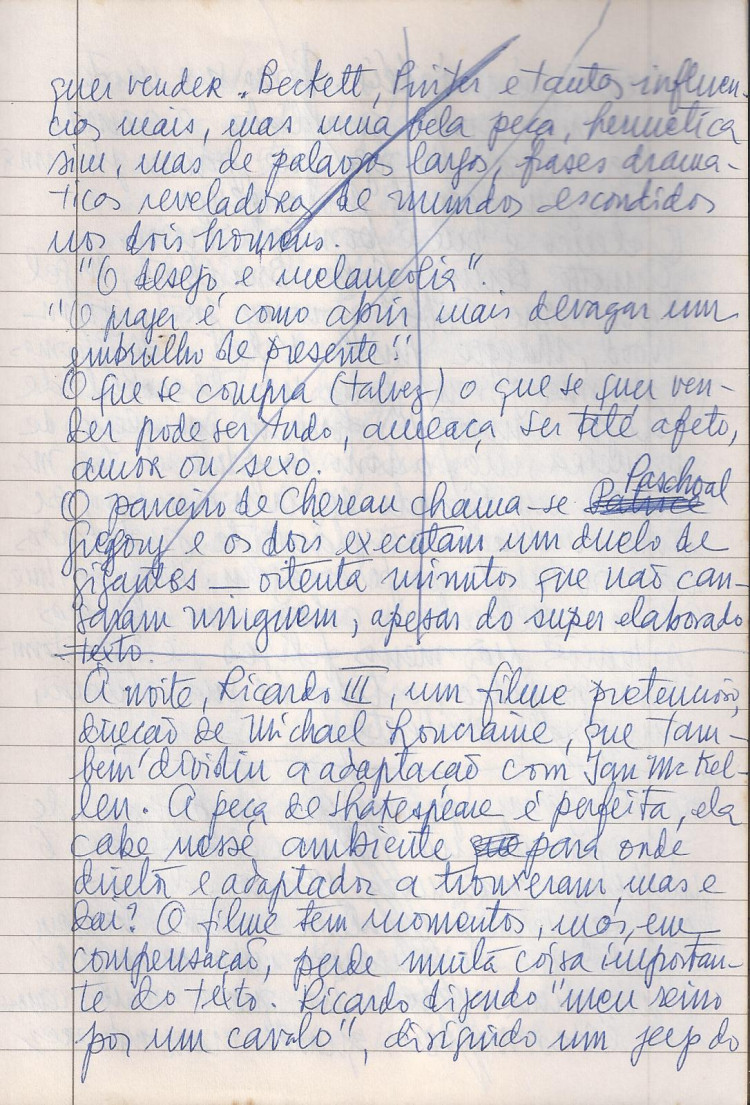 quer vender. Beckett, Pinter e tantas influen-
cias mais, mas uma bela peça, hermetica
sim, mas de palavras largas, frases drama-
ticas reveladoras de mundos escondidos
nos dois homens.
"O desejo e melancolia".
"O prazer é como abrir mais devagar um
embrulho de presente"
O que se compra (talvez) o que se quer ven-
der pode ser tudo, ameaça ser até afeto,
amor ou sexo.
O parceiro de Chereau chama-se Paschoal
Gregory e os dois executam um duelo de
gigantes — oitenta minutos que não can-
saram ninguem, apesar do super elaborado
texto.
À noite, Ricardo III, um filme pretencioso,
direcão de Michael Loncraine, que tam-
bém dividiu a adaptacão com Ian McKel-
len. A peça de Shakespeare é perfeita, ela
cabe nesse ambiente para onde
diretor e adaptador a trouxeram, mas e
dai? O filme tem momentos, mas, em
compensacão, perde muita coisa importan-
te do texto. Ricardo dizendo "meu reino
por um cavalo", dirigindo um jeep do